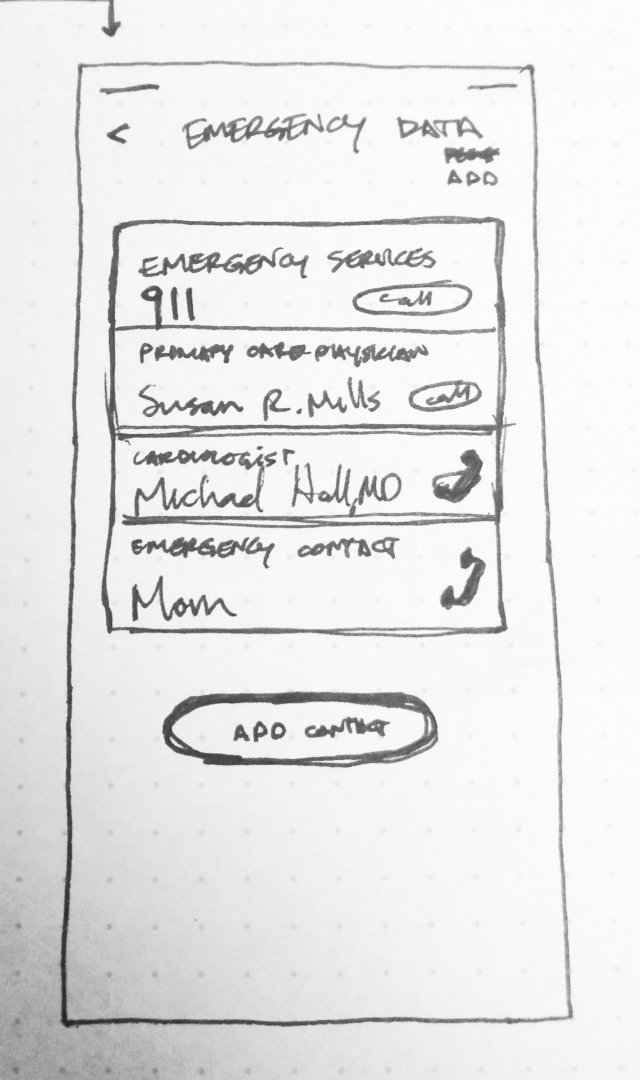 < EMERGENCY DATA
ADD
EMERGENCY SERVICES
911 call
PRIMARY CARE PHYSICIAN
Susan R. Mills call
CARDIOLOGIST
Michael Hall, MD
EMERGENCY CONTACT
Mom
ADD CONTACT